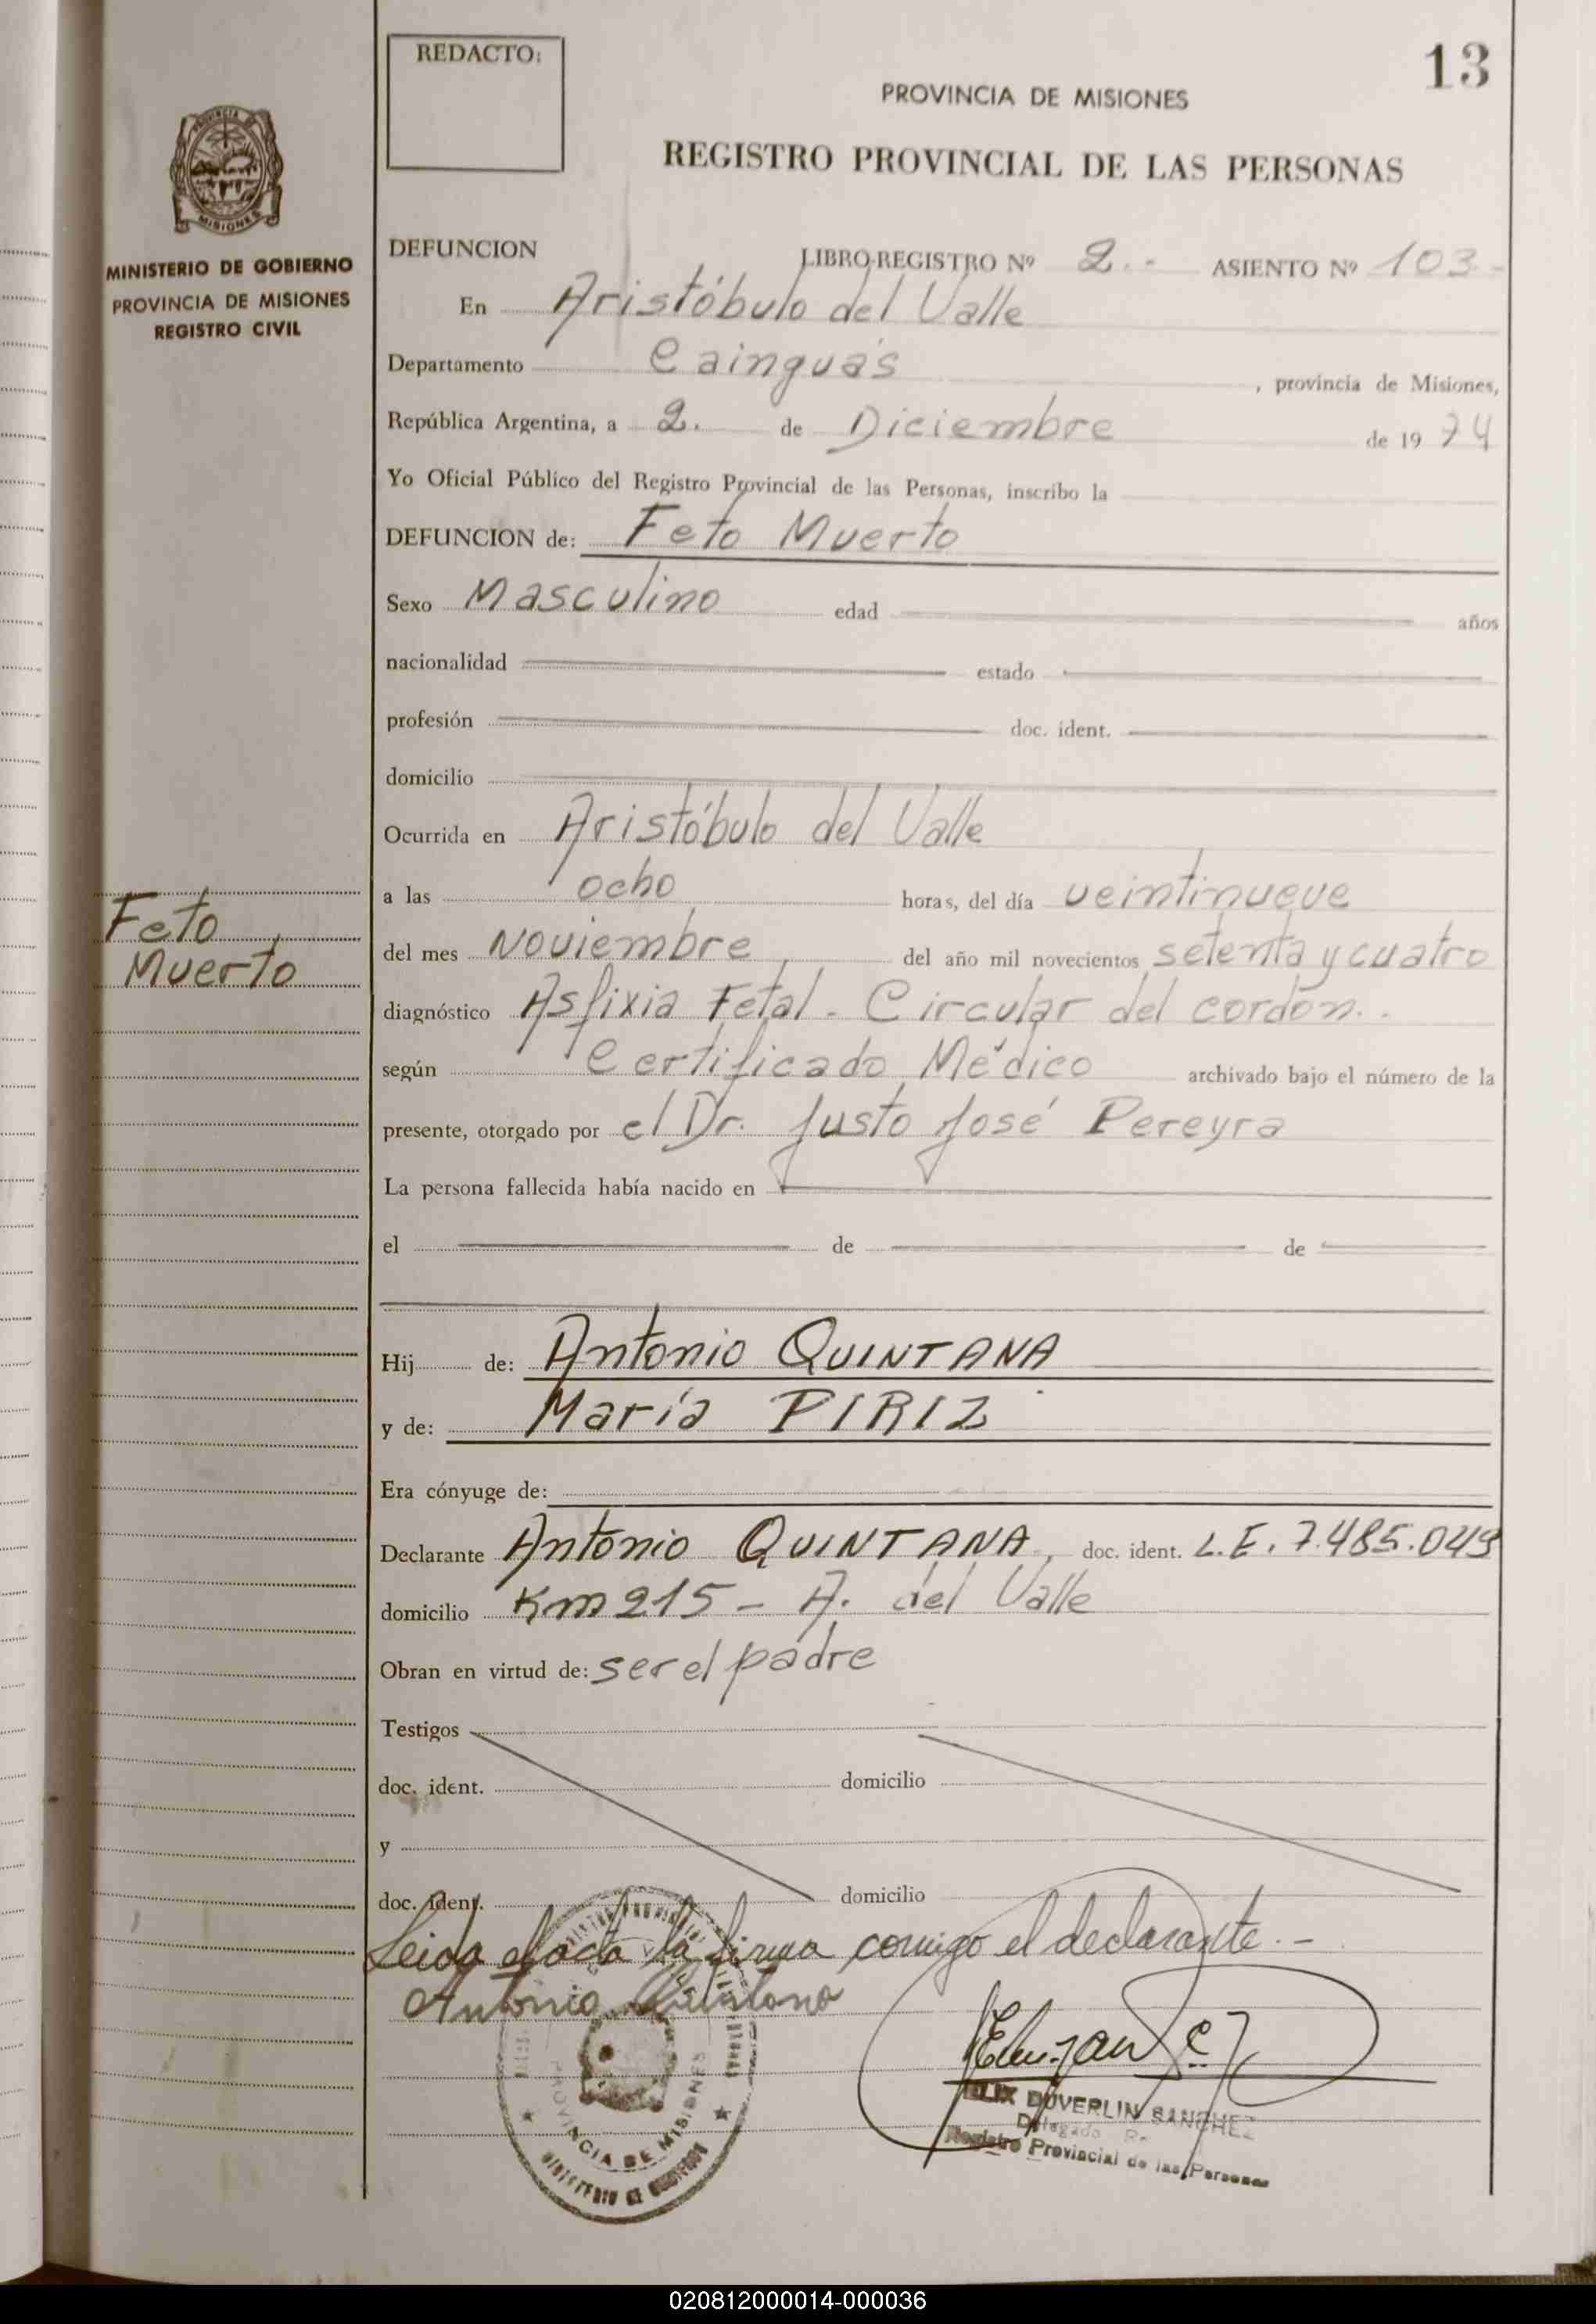 REDACTO:
13
PROVINCIA DE MISIONES
REGISTRO PROVINCIAL DE LAS PERSONAS
PROVINCIA DE
MISIONES
MINISTERIO DE GOBIERNO
PROVINCIA DE MISIONES
REGISTRO CIVIL
DEFUNCION LIBRO-REGISTRO Nº 2.- ASIENTO Nº 103-
En Aristóbulo del Valle
Departamento Cainguás , provincia de Misiones,
República Argentina, a 2. de Diciembre de 19 74
Yo Oficial Público del Registro Provincial de las Personas, inscribo la
DEFUNCION de: Feto Muerto
Sexo Masculino edad años
nacionalidad estado
profesión doc. ident.
domicilio
Ocurrida en Aristóbulo del Valle
a las ocho horas, del día veintinueve
del mes Noviembre del año mil novecientos setenta y cuatro
Feto
Muerto
diagnóstico Asfixia Fetal - Circular del cordón..
según Certificado Médico archivado bajo el número de la
presente, otorgado por el Dr. Justo José Pereyra
La persona fallecida había nacido en
el de de
Hij de: Antonio QUINTANA
y de: María PIRIZ
Era cónyuge de:
Declarante Antonio QUINTANA, doc. ident. L.E. 7.485.049
domicilio Km 215 - A. del Valle
Obran en virtud de: ser el padre
Testigos
doc. ident. domicilio
y
doc. ident. domicilio
Leida el acta la firma comigo el declarante.-
Antonio Quintana
PROVINCIA DE MISIONES
MINISTERIO DE GOBIERNO
ELIX DUVERLIN SANCHEZ
Delegado
Registro Provincial de las Personas
020812000014-000036